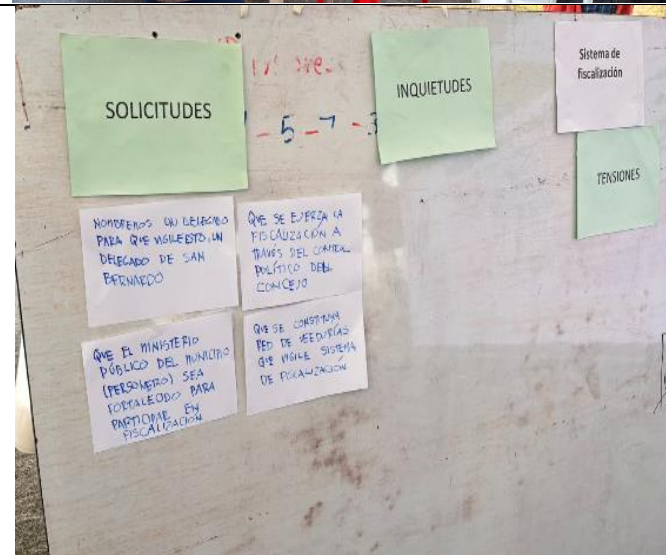 SOLICITUDES
INQUIETUDES
Sistema de
fiscalización
TENSIONES
- 5 - 7 - 3
NOMBREMOS UN DELEGADO
PARA QUE VIGILE ESTO, UN
DELEGADO DE SAN
BERNARDO
QUE SE EJERZA LA
FISCALIZACIÓN A
TRAVÉS DEL CONTROL
POLÍTICO DEL
CONCEJO
QUE EL MINISTERIO
PÚBLICO DEL MUNICIPIO
(PERSONERO) SEA
FORTALECIDO PARA
PARTICIPAR EN
FISCALIZACIÓN
QUE SE CONSTITUYA
RED DE VEEDURÍAS
QUE VIGILE SISTEMA
DE FISCALIZACIÓN